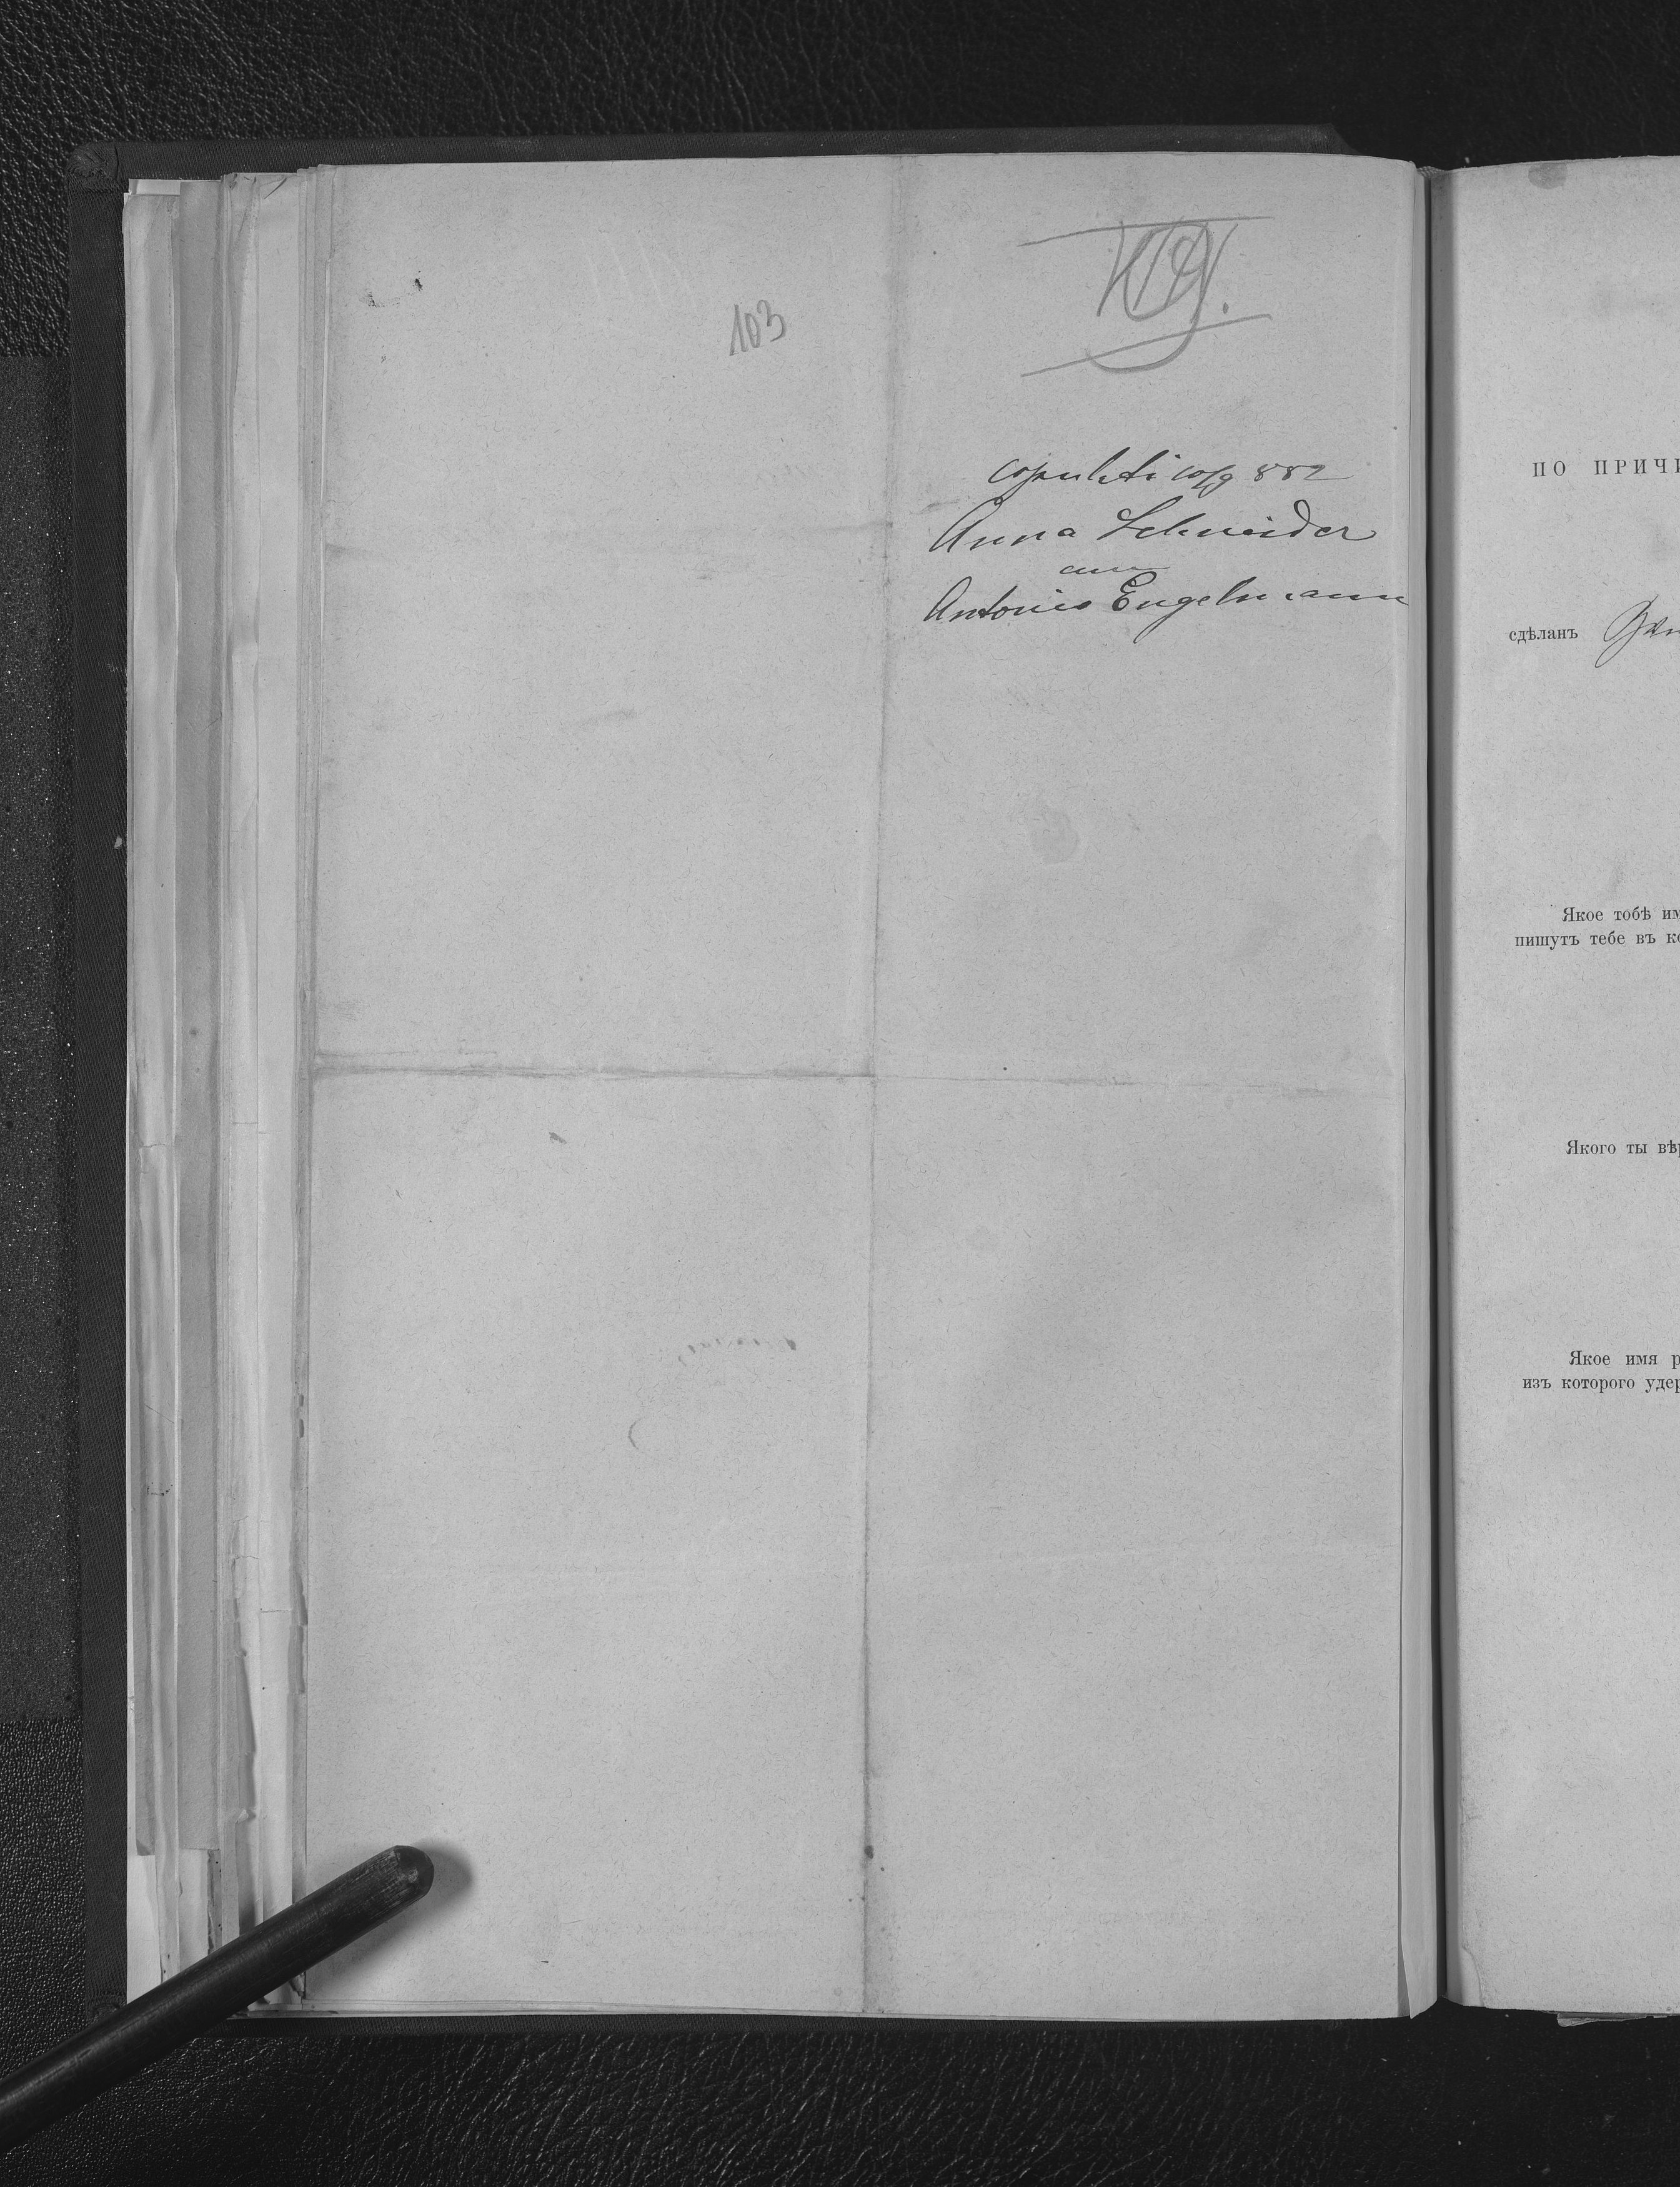 103
copulati 10/9 882
Anna Schneider
cum
Antonio Engelmann
ПО ПРИЧИ
сдѣланъ
Якое тобѣ им
пишутъ тебе въ ко
Якого ты вѣр
Якое имя р
изъ которого удер